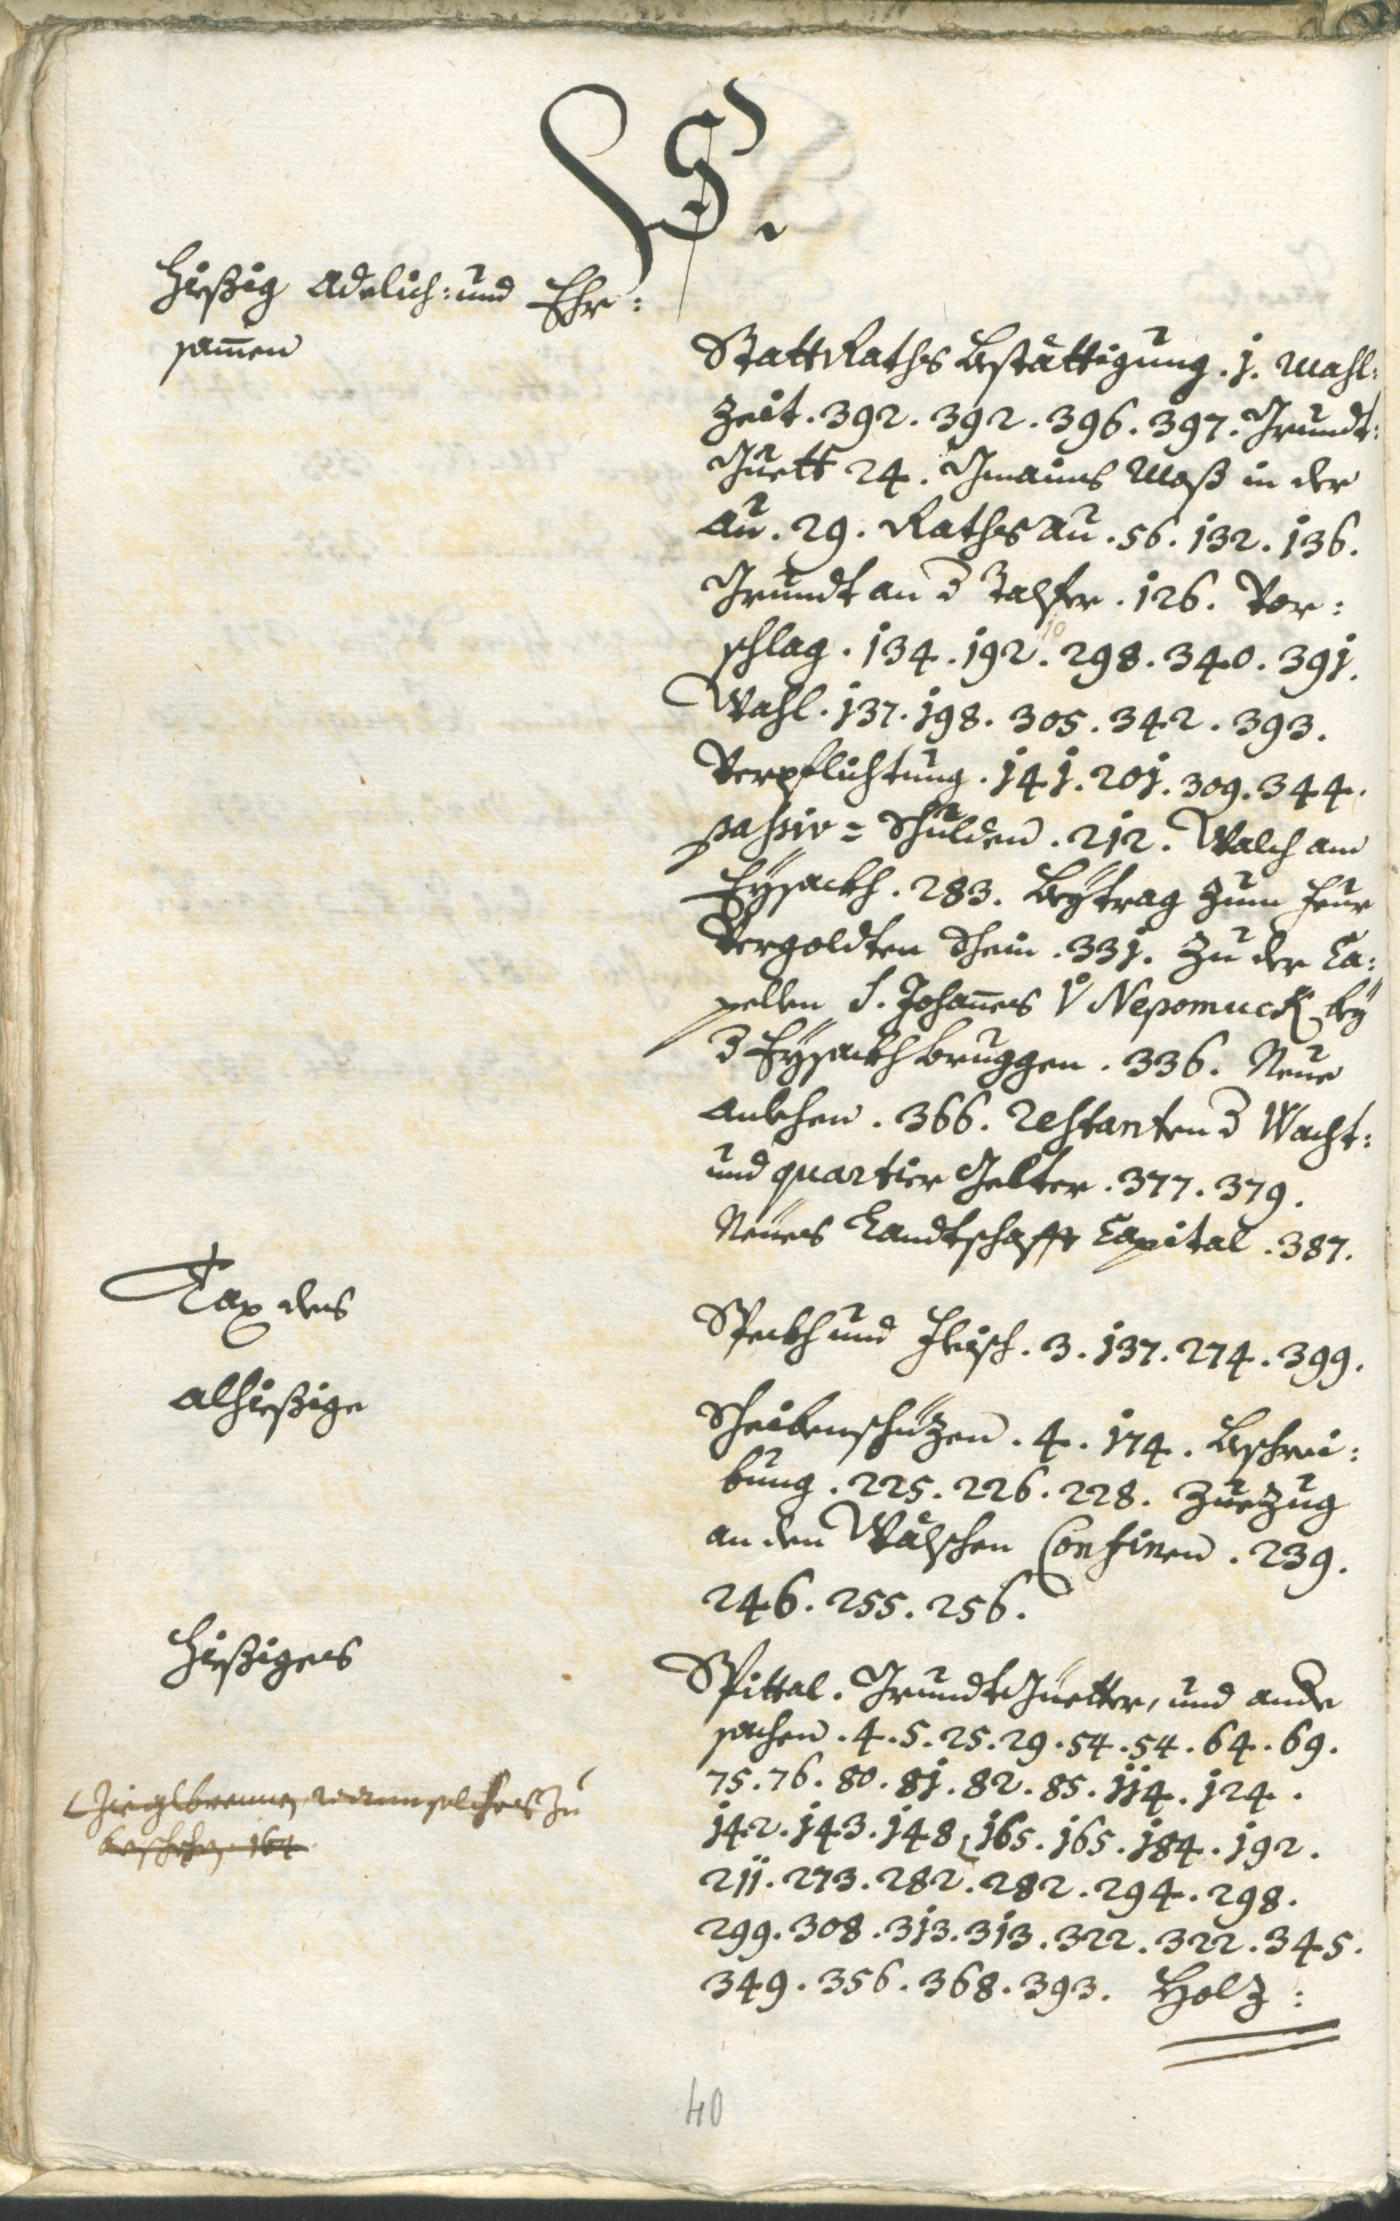 S.
Hießig Adelich: und Ehr:
samen
StattRaths Bestättigung. 1. Mahl:
zeit. 392. 392. 396. 397. Grundt:
Guett 24. Gmains Moß in der
Au. 29. Raths Au. 56. 132. 136.
Grundt an d Talfer. 126. Vor:
schlag. 134. 192. 298. 340. 391.
10
Wahl. 137. 198. 305. 342. 393.
Verpflichtung. 141. 201. 309. 344.
passiv= Schulden. 212. Walch am
Eysackh. 283. Beytrag zum
Vergoldten 331. Zu der Ca:
pellen S. Johannes V Nepomuck bey
d Eysackhbruggen. 336. Neue
Anlehen. 366. Restanten d Wacht:
und quartier Gelter. 377. 379.
Neues Landtschafft Capital. 387.
Tax des
Speckh und Fleisch. 3. 137. 274. 399.
alhießige
Scheibenschüzen. 4. 174. Beschrei:
bung. 225. 226. 228. Zuezug
an den Wälschen Confinen. 239.
246. 255. 256.
Hießiges
Spittal. Grundt Güetter, und andre
sachen. 4. 5. 25. 29. 54. 54. 64. 69.
75. 76. 80. 81. 82. 85. 114. 124.
142. 143. 148. 165. 165. 184. 192.
Zieglbrennen warum solches zu
beschehen 164
211. 273. 282. 282. 294. 298.
299. 308. 313. 313. 322. 322. 345.
349. 356. 368. 393. Holz:
40